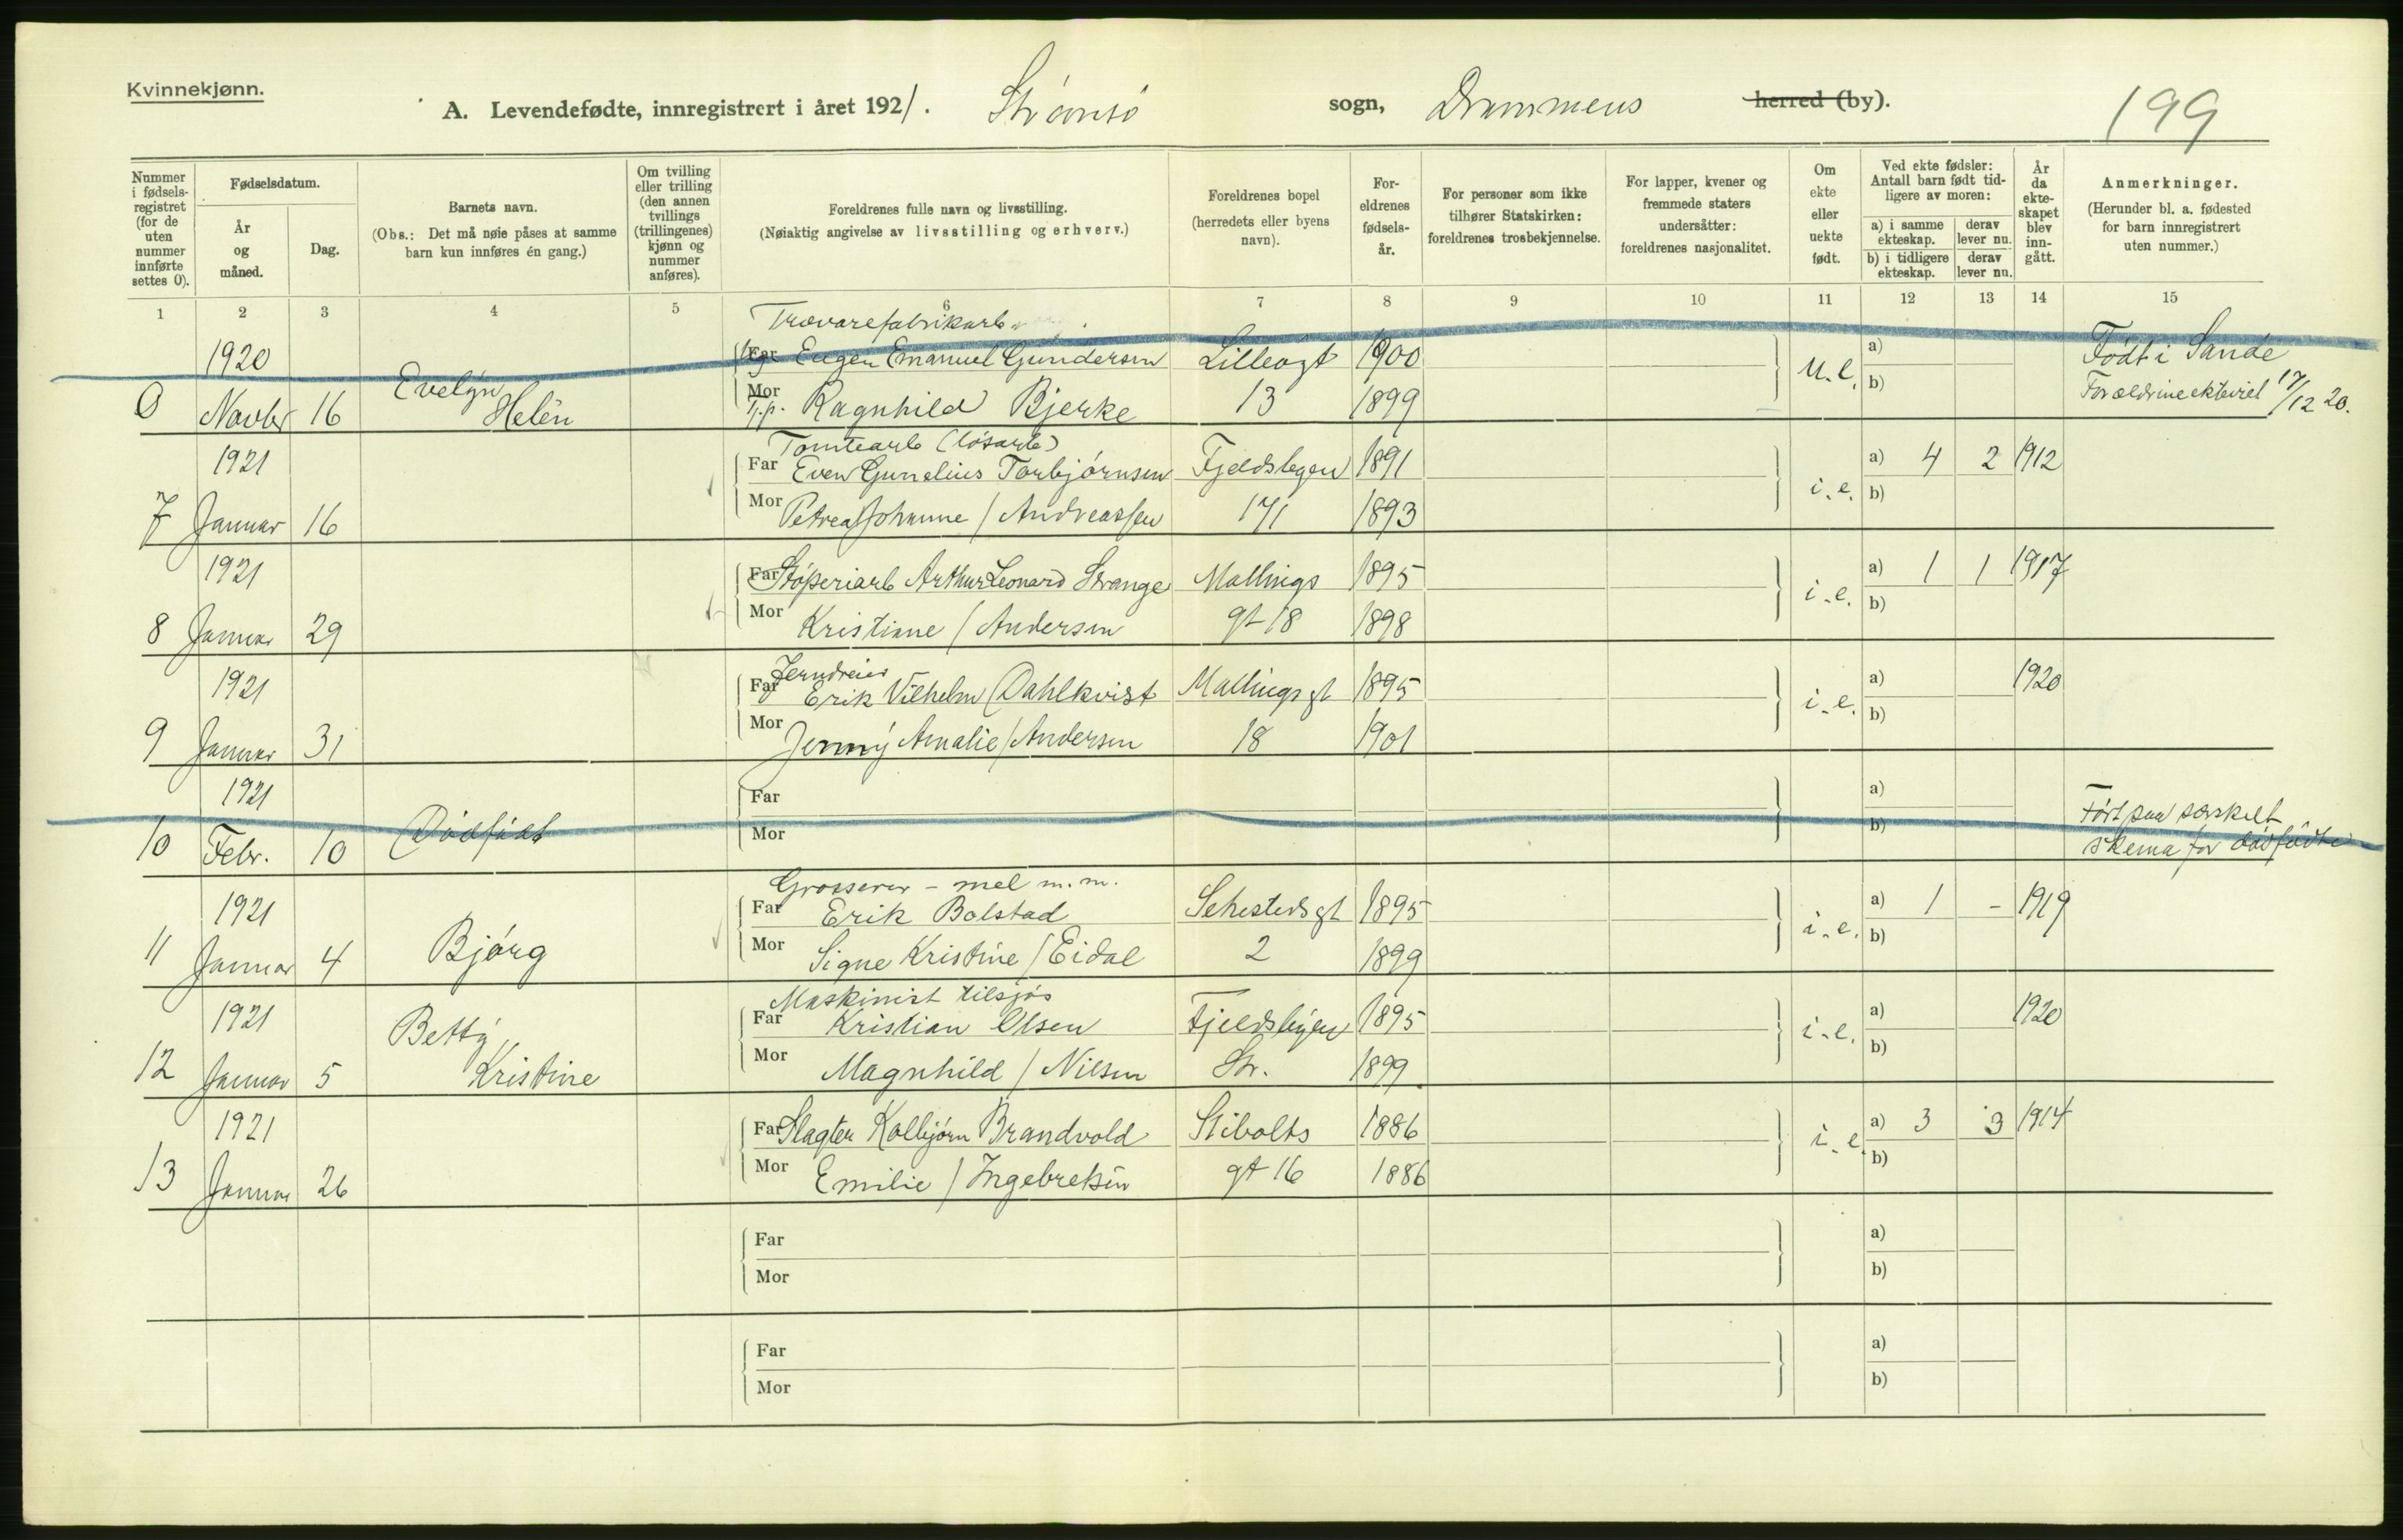 Kvinnekjønn.
A. Levendefødte, innregistrert i året 1921. Strømsø sogn, Drammens herred (by). 199
Nummer i fødselsregistret (for de uten nummer innførte settes 0).
Fødselsdatum.
År og måned.
Dag.
Barnets navn.
(Obs.: Det må nøie påses at samme barn kun innføres én gang.)
Om tvilling eller trilling (den annen tvillings (trillingenes) kjønn og nummer anføres).
Foreldrenes fulle navn og livsstilling.
(Nøiaktig angivelse av livsstilling og erhverv.)
Foreldrenes bopel (herredets eller byens navn).
Foreldrenes fødselsår.
For personer som ikke tilhører Statskirken: foreldrenes trosbekjennelse.
For lapper, kvener og fremmede staters undersåtter: foreldrenes nasjonalitet.
Om ekte eller uekte født.
Ved ekte fødsler: Antall barn født tidligere av moren:
a) i samme ekteskap. derav lever nu.
b) i tidligere ekteskap. derav lever nu.
År da ekteskapet blev inngått.
Anmerkninger.
(Herunder bl. a. fødested for barn innregistrert uten nummer.)
1 2 3 4 5 6 7 8 9 10 11 12 13 14 15
Trævarefabrikarb.
1920 Far Eugen Emanuel Gundersen Lilleøgt 1900 a) Født i Sande
0 Novbr 16 Evelyn Helen Mor Tj.p. Ragnhild Bjerke 13 1899 u.e. b) Forældrene ekteviet 17/12 20.
Tomtearb (løsarb)
1921 Far Even Gunelius Torbjørnsen Fjeldsbyen 1891 a) 4 2 1912
7 Januar 16 Mor Petrea Johanne / Andreassen 171 1893 i.e. b)
1921 Far Støperiarb Arthur Leonard Strange Mallings 1895 a) 1 1 1917
8 Januar 29 Mor Kristiane / Andersen gt 18 1898 i.e. b)
Jerndreier
1921 Far Erik Vilhelm Dahlkvist Mallings gt 1895 a) 1920
9 Januar 31 Mor Jenny Amalie / Andersen 18 1901 i.e. b)
1921 Far a) Ført paa særskilt
10 Febr. 10 Dødfødt Mor b) skema for dødfødte
Grosserer - mel m.m.
1921 Far Erik Bolstad Sehestedsgt 1895 a) 1 - 1919
11 Januar 4 Bjørg Mor Signe Kristine / Eidal 2 1899 i.e. b)
Maskinist tilsjøs
1921 Far Kristian Olsen Fjeldsbyen 1895 a) 1920
12 Januar 5 Betty Kristine Mor Magnhild / Nilsen Str. 1899 i.e. b)
1921 Far Slagter Kolbjørn Brandvold Stibolts 1886 a) 3 3 1914
13 Januar 26 Mor Emilie / Ingebretsen gt 16 1886 i.e. b)
Far a)
Mor b)
Far a)
Mor b)